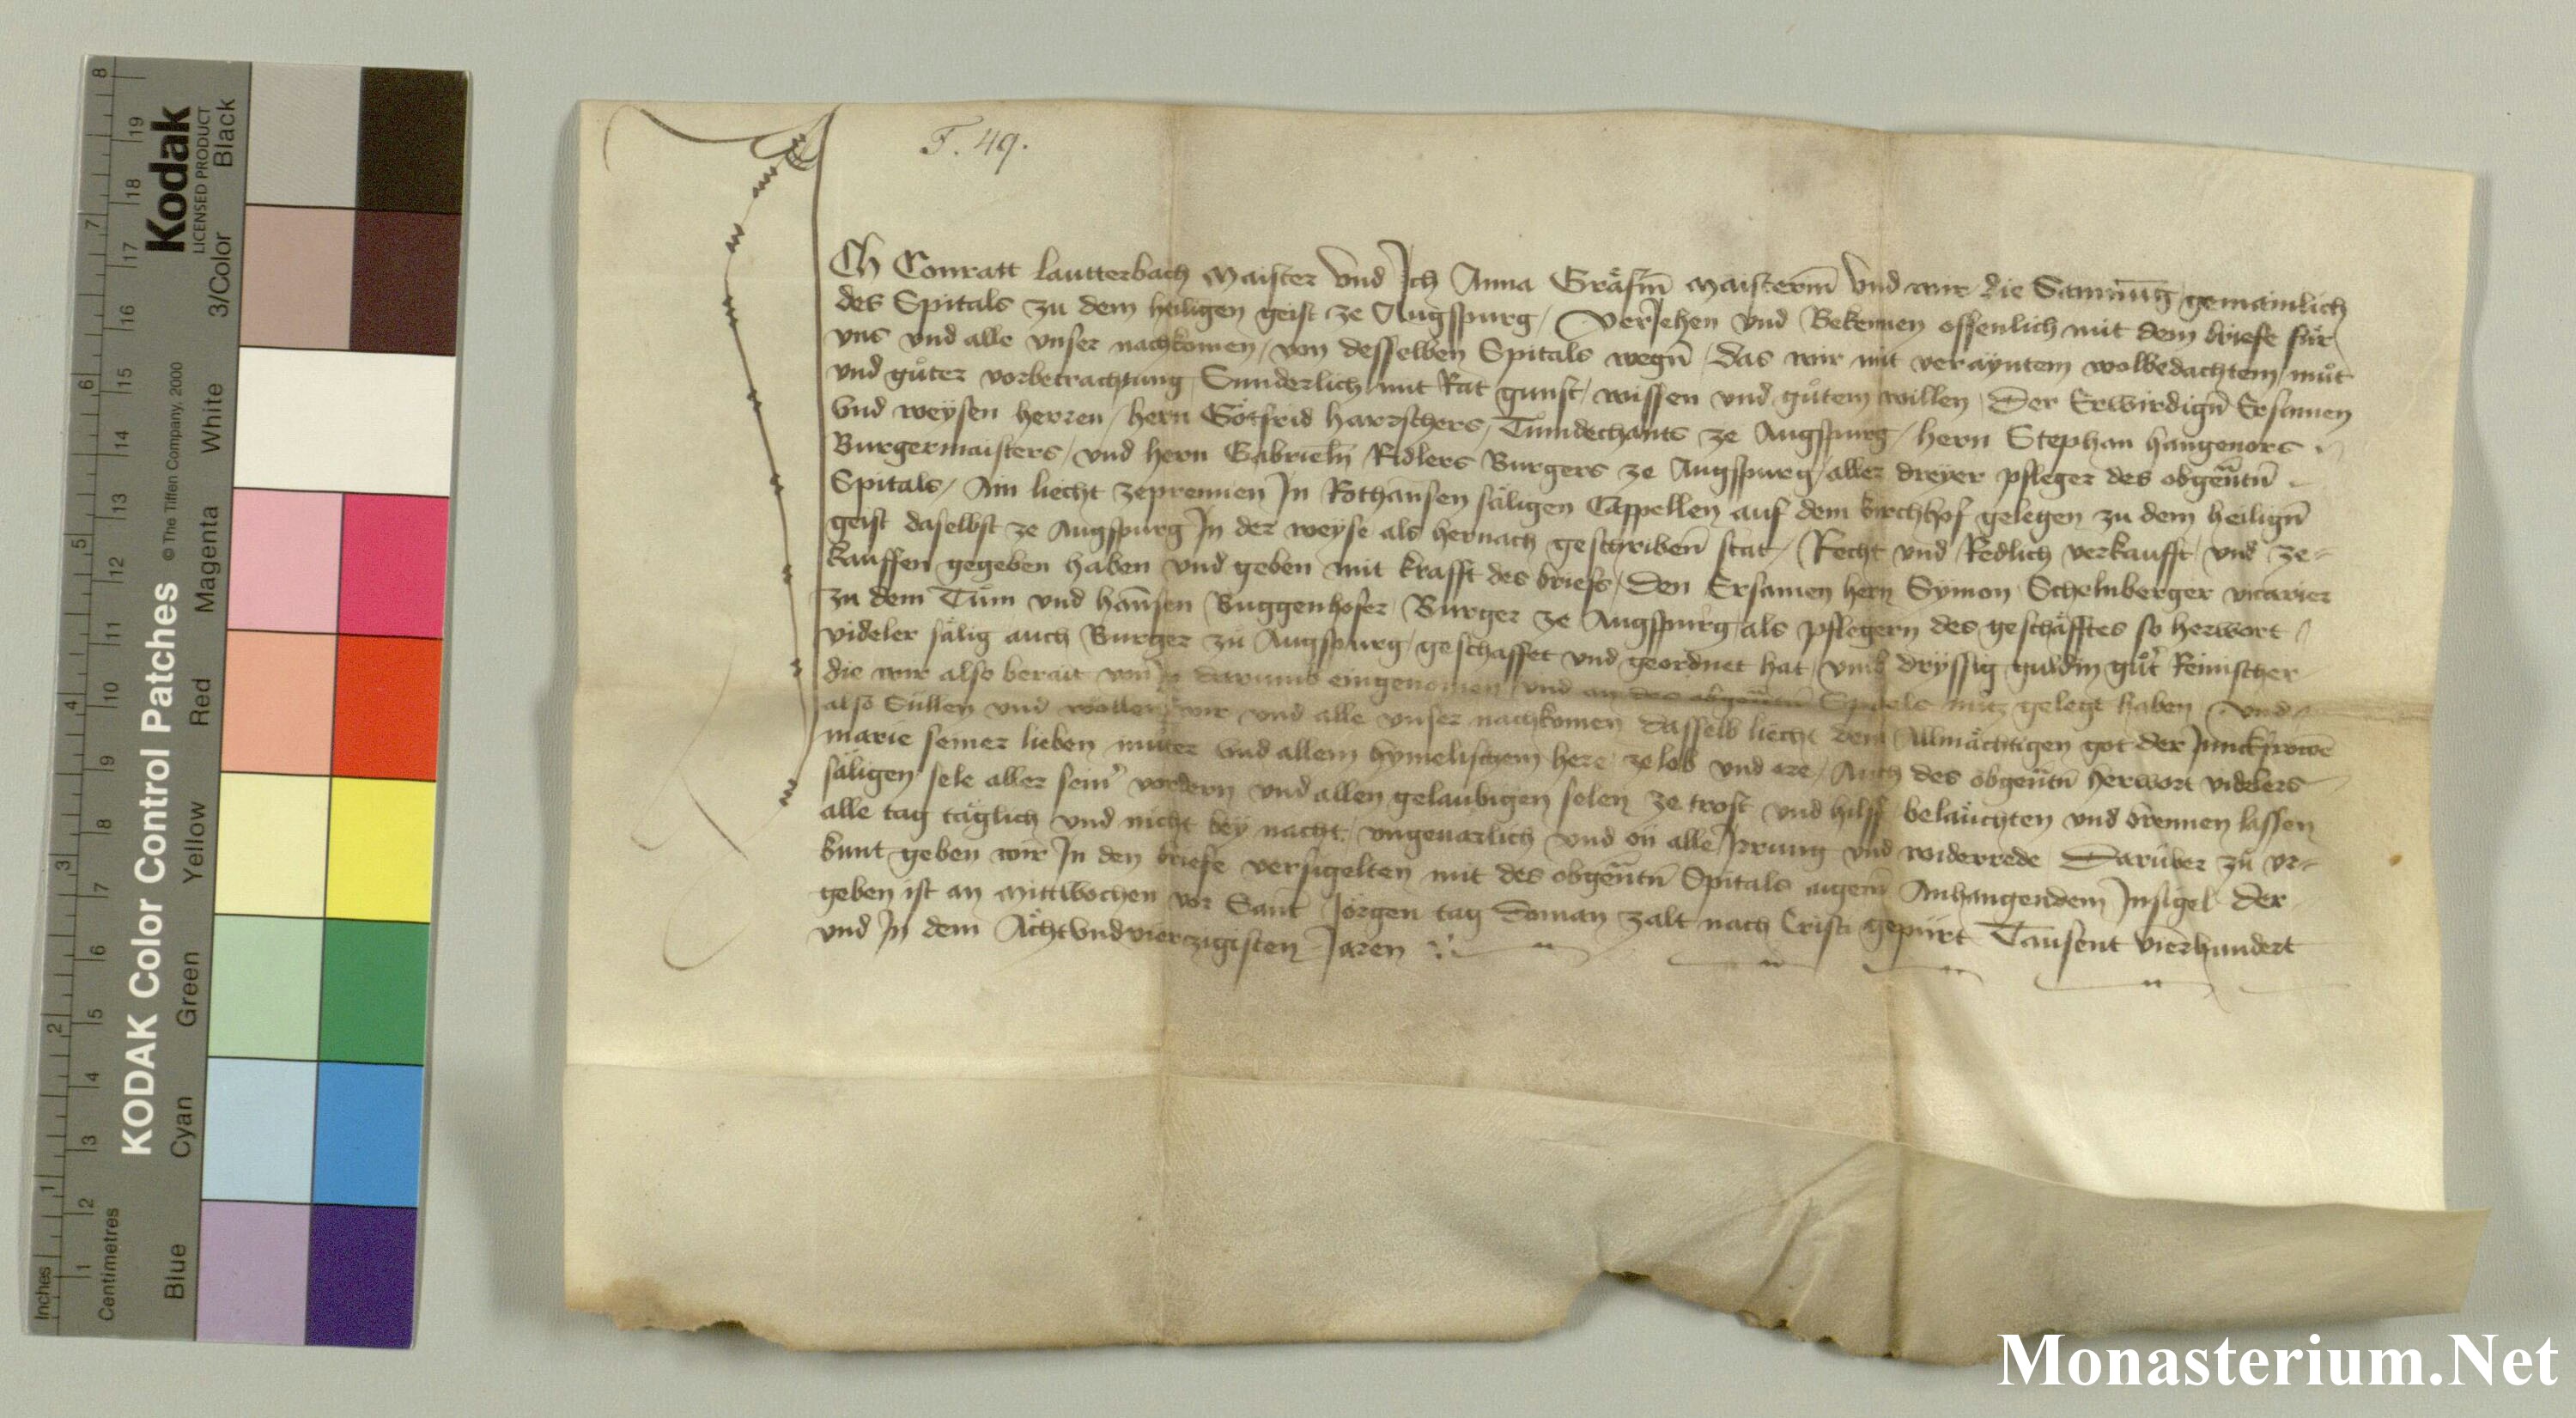 F. 49.
Ich Conratt lautterbach Maister vnd Ich Anna Gräfin Maisterin vnd wir die Samnūg gemainlich
des Spitals zu dem heiligen geist ze Augspurg / Veriehen vnd Bekennen offenlich mit dem briefe für
vns vnd alle vnser nachkomen / von desselben Spitals wegn̄ / das wir mit verayntem wolbedachtem můt
vnd gůter vorbetrachtung Sunderlich mit Rat gunst / wissen vnd gůtem willen / Der Erwirdign̄ Ersamen
vnd weysen herren / hern Götfrid harrschers / Tůmdechants ze Augspurg / hern Stephan hangenors
Burgermaisters / vnd hern Gabrieln Ridlers Burgers ze Augspurg / aller dreyer pfleger des obgen̄tn̄
Spitals / Ain liecht zeprennen In Rothansen säligen Cappellen auf dem kirchhof gelegen zu dem heilign̄
geist daselbst ze Augspurg In der weyse als hernach geschriben̄ stat / Recht vnd Redlich verkaufft / vnd ze-
kauffen gegeben haben vnd geben mit krafft des briefs / Den Ersamen hern Symon Schelnberger vicarier
zu dem Tům vnd hannsen Buggenhofer Burger ze Augspurg als pflegern des geschäfftes so herwort
videler sälig auch Burger zu Augspurg / geschaffet vnd geordnet hat / vmb dryssig guldin gůt Reinischer
die wir also berait von In darumb eingenomen / vnd an des obgen̄tn̄ Spitals nutz gelegt haben / Vnd
also Süllen vnd wöllen wir vnd alle vnser nachkomen dasselb liecht dem Allmächtigen got der Junckfrowē
marie seiner lieben můter vnd allem hymelischem here ze lob vnd ere / Auch des obgen̄tn̄ herwort videlers
säligen sele aller seinr vordern vnd allen gelaubigen selen ze trost vnd hilff beläuchten vnd brennen lassen
alle tag täglich vnd nicht bey nacht / vngeuarlich vnd on alle Irrung vnd widerrede / Darüber zů vr-
kunt geben wir In den briefe versigelten mit des obgen̄tn̄ Spitals aigem̄ Anhangendem Insigel Der
geben ist an Mittwochen vor Sant Jörgen tag Doman zalt nach Cristi gepůrt Tausent vierhundert
vnd In dem Achtvndvierzigisten Jaren
Kodak
LICENSED PRODUCT
KODAK Color Control Patches
© The Tiffen Company, 2000
Black
3/Color
White
Magenta
Red
Yellow
Green
Cyan
Blue
Inches
1 2 3 4 5 6 7 8
Centimetres
1 2 3 4 5 6 7 8 9 10 11 12 13 14 15 16 17 18 19
Monasterium.Net